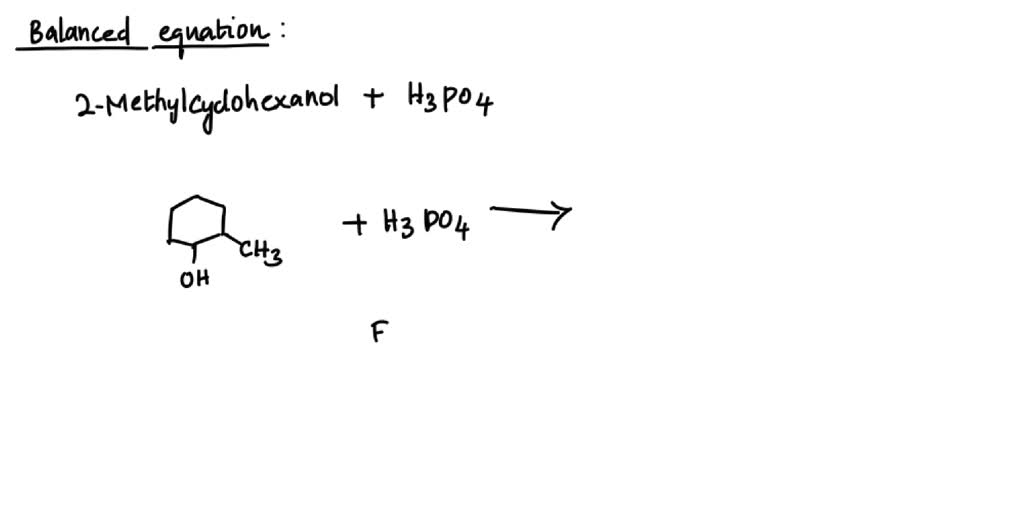 Balanced equation :
2-Methylcyclohexanol + H3PO4
+ H3PO4
CH3
OH
F